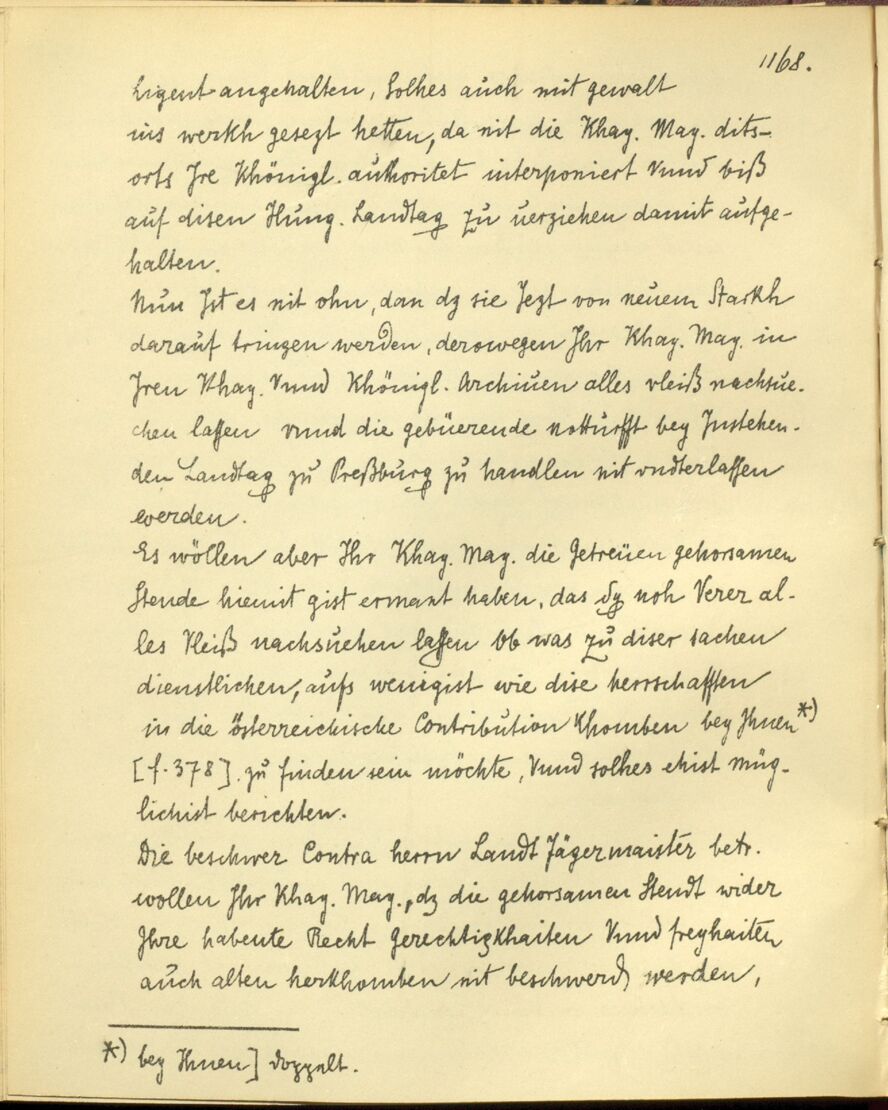 1168.
ligent angehalten, Solhes auch mit gewalt
ins werkh gesezt hetten, da nit die Khay. May. dits-
orts Jre Khönigl. authoritet interponiert Vnnd biß
auf disen Hung. Landtag zu uerziehen damit aufge-
halten.
Nun Jst es nit ohn, dan dz sie Jezt von neuem Starkh
darauf tringen werden, derowegen Jhr Khay. May. in
Jren Khay. Vnnd Khönigl. Archiuen alles vleiß nachsue-
chen lassen vnnd die gebüerende notturfft bey Jnstehen-
den Landtag zu Preßburg zu handlen nit vndterlassen
werden.
Es wöllen aber Ihr Khay. May. die Getreüen gehorsamen
Stende hiemit gist ermant haben, das Sy noh Verer al-
les Vleiß nachsuehen lassen Ob was zu diser sachen
dienstlichen, aufs wenigist wie dise herrschafften
in die österreichische Contribution Khomben bey Jhnen *)
[f. 378] zu finden sein möchte, Vnnd solhes ehist müg-
lichist berichten.
Die beschwer Contra herrn Landt Jägermaister betr.
wollen Jhr Khay. May., dz die gehorsamen Stendt wider
Jhre habente Recht Gerechtigkhaiten Vnnd freyhaiten
auch alten herkhomben nit beschwerd werden,
*) bey Ihnen] doppelt.